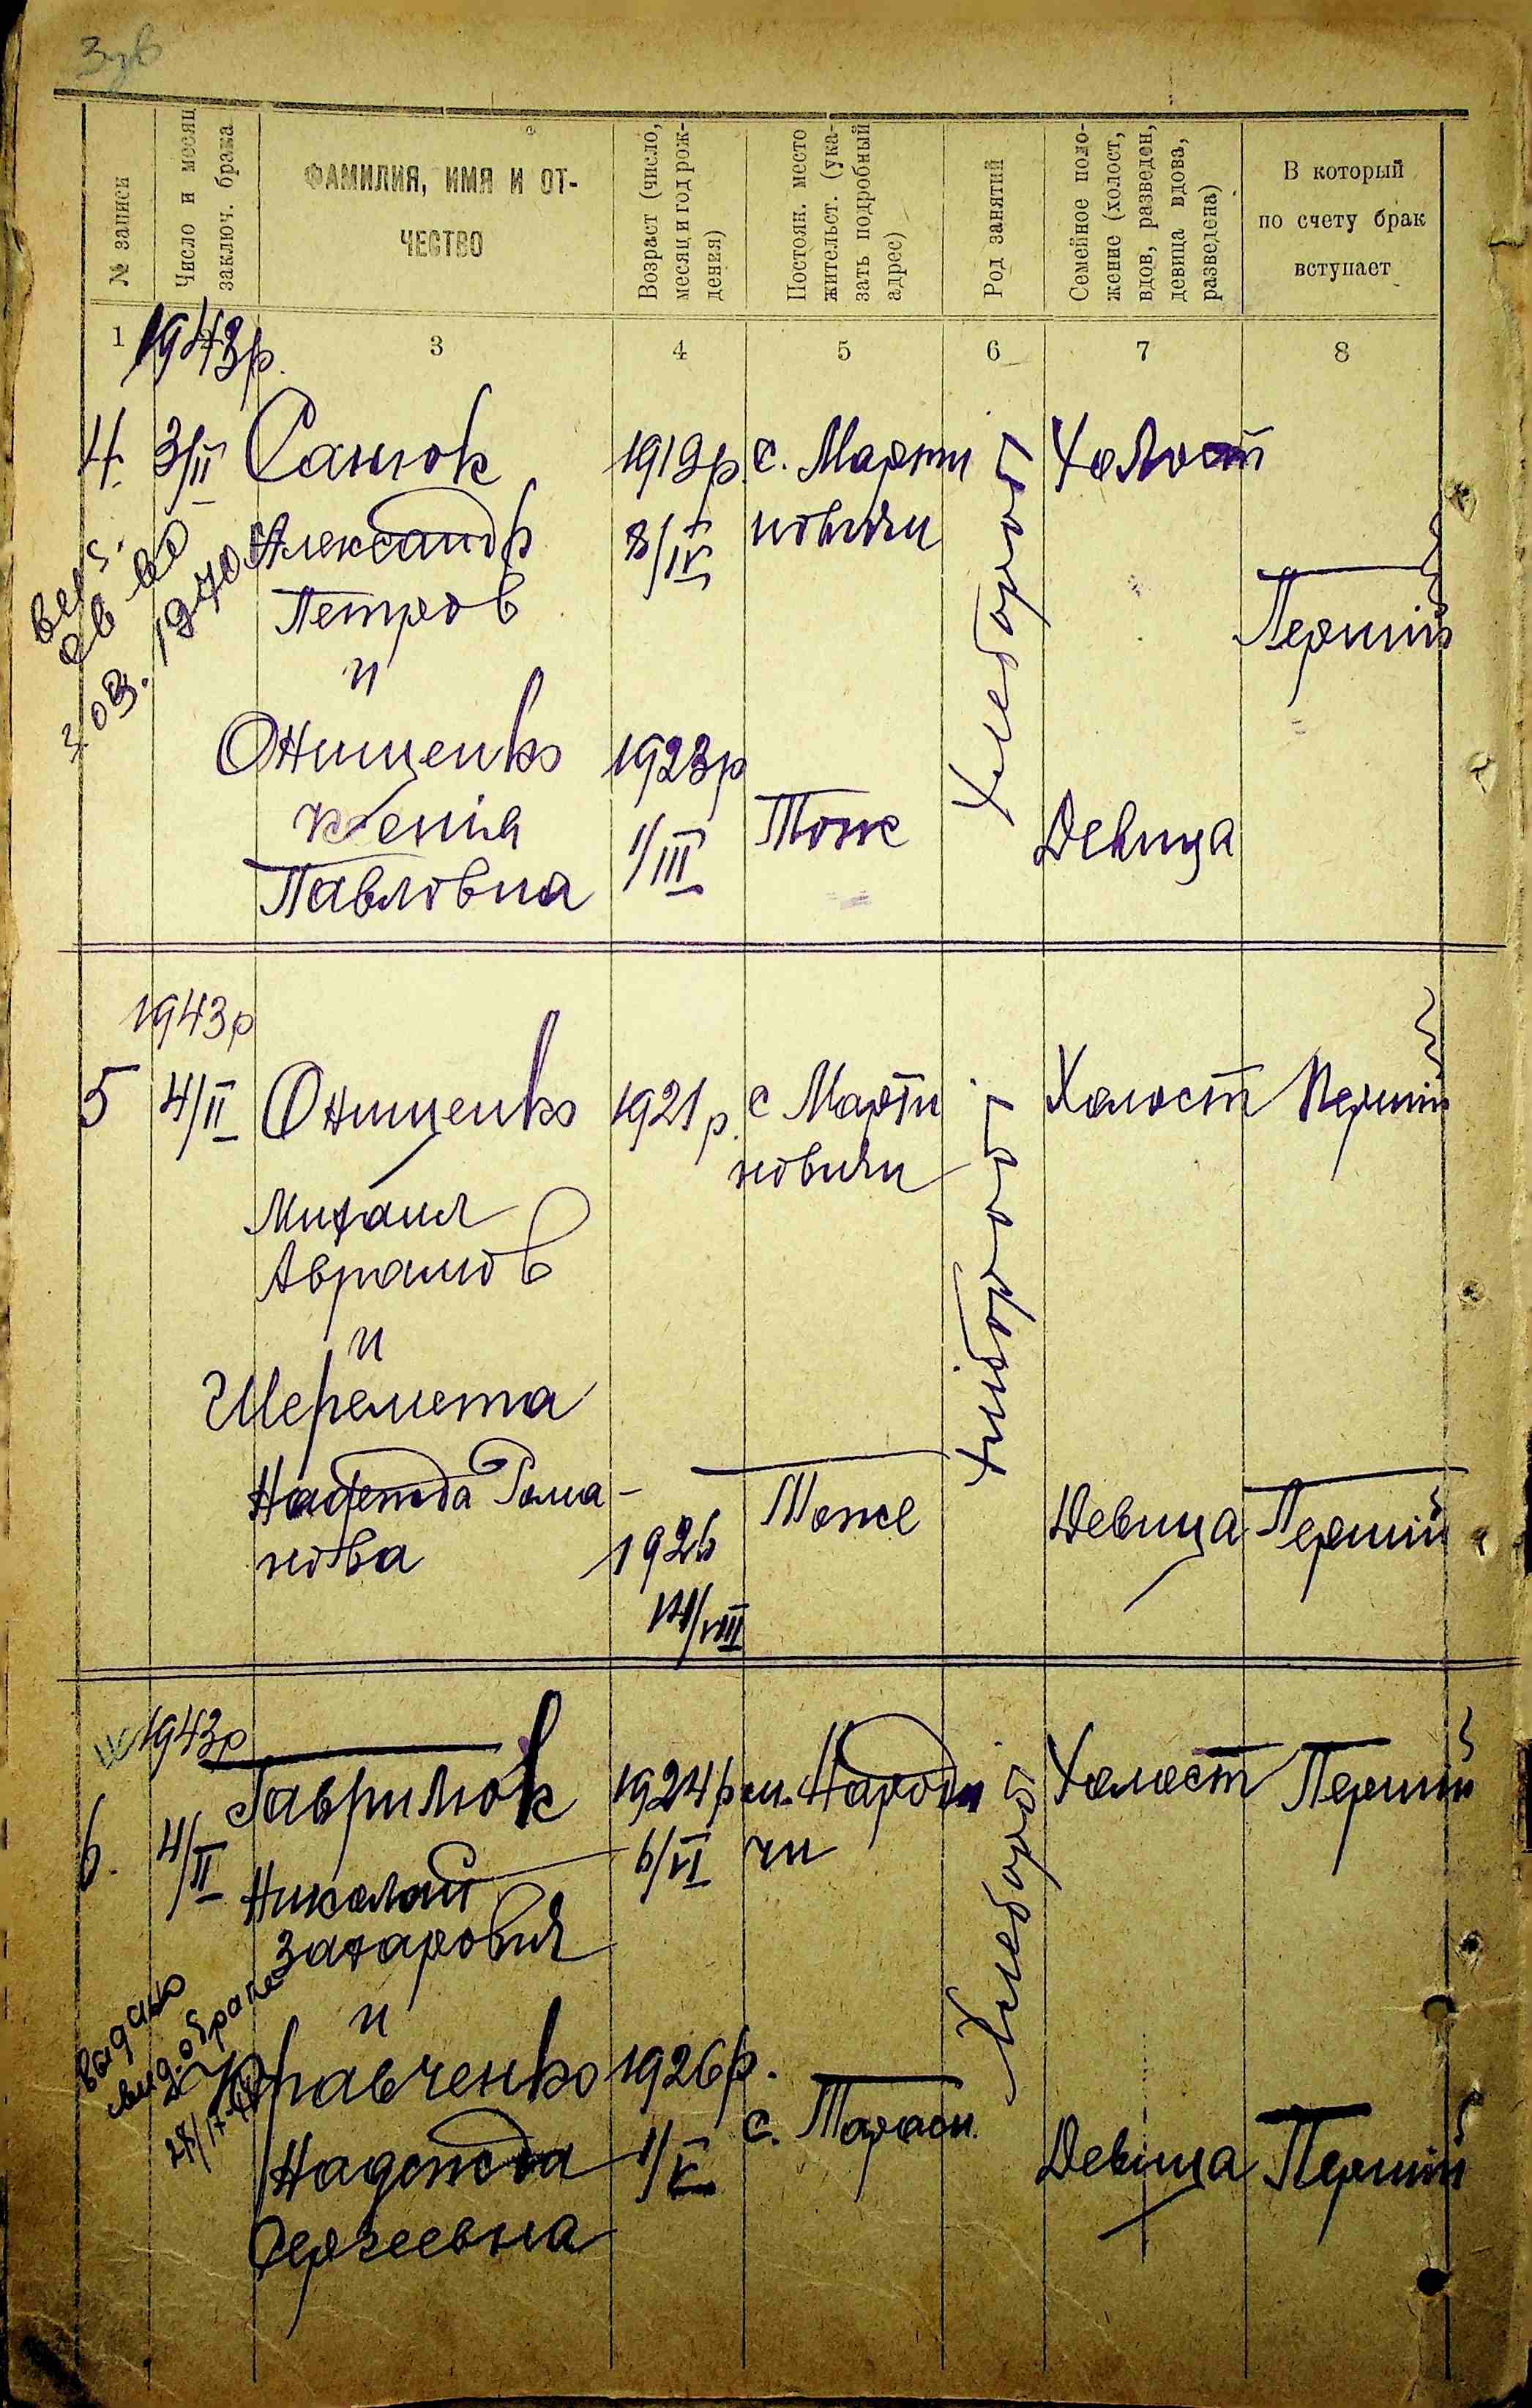 № записи
Число и месяц
заключ. брака
ФАМИЛИЯ, ИМЯ И ОТ-
ЧЕСТВО
Возраст (число,
месяц и год рож-
дения)
Постоян. место
жительст. (ука-
зать подробный
адрес)
Род занятий
Семейное поло-
жение (холост,
вдов, разведен,
девица вдова,
разведена)
В который
по счету брак
вступает
1
3
4
5
6
7
8
1943р.
4. 3/II Санюк 1919р. с. Марти Холост
Александр 8/IV новичи
Петров
Перший
и
Хлебороб
Онищенко 1923р
Ксенія 1/III Тоже Девица
Павловна
1970
1943р
5 4/II Онищенко 1921р. с Марти Холост Перший
новичи
Михаил
Аврамов
и
Хлібороб
Шеремета
Надежда Рома-
нова 1926 Тоже Девица Перший
14/VIII
1943р
6. 4/II Гаврилюк 1924р м. Народи Холост Перший
Николай 6/VI чи
Захарович
и
Хлебороб
выдано
свид. о браке
Кравченко 1926р.
Надежда 1/V с. Тараси. Девица Перший
Сергеевна